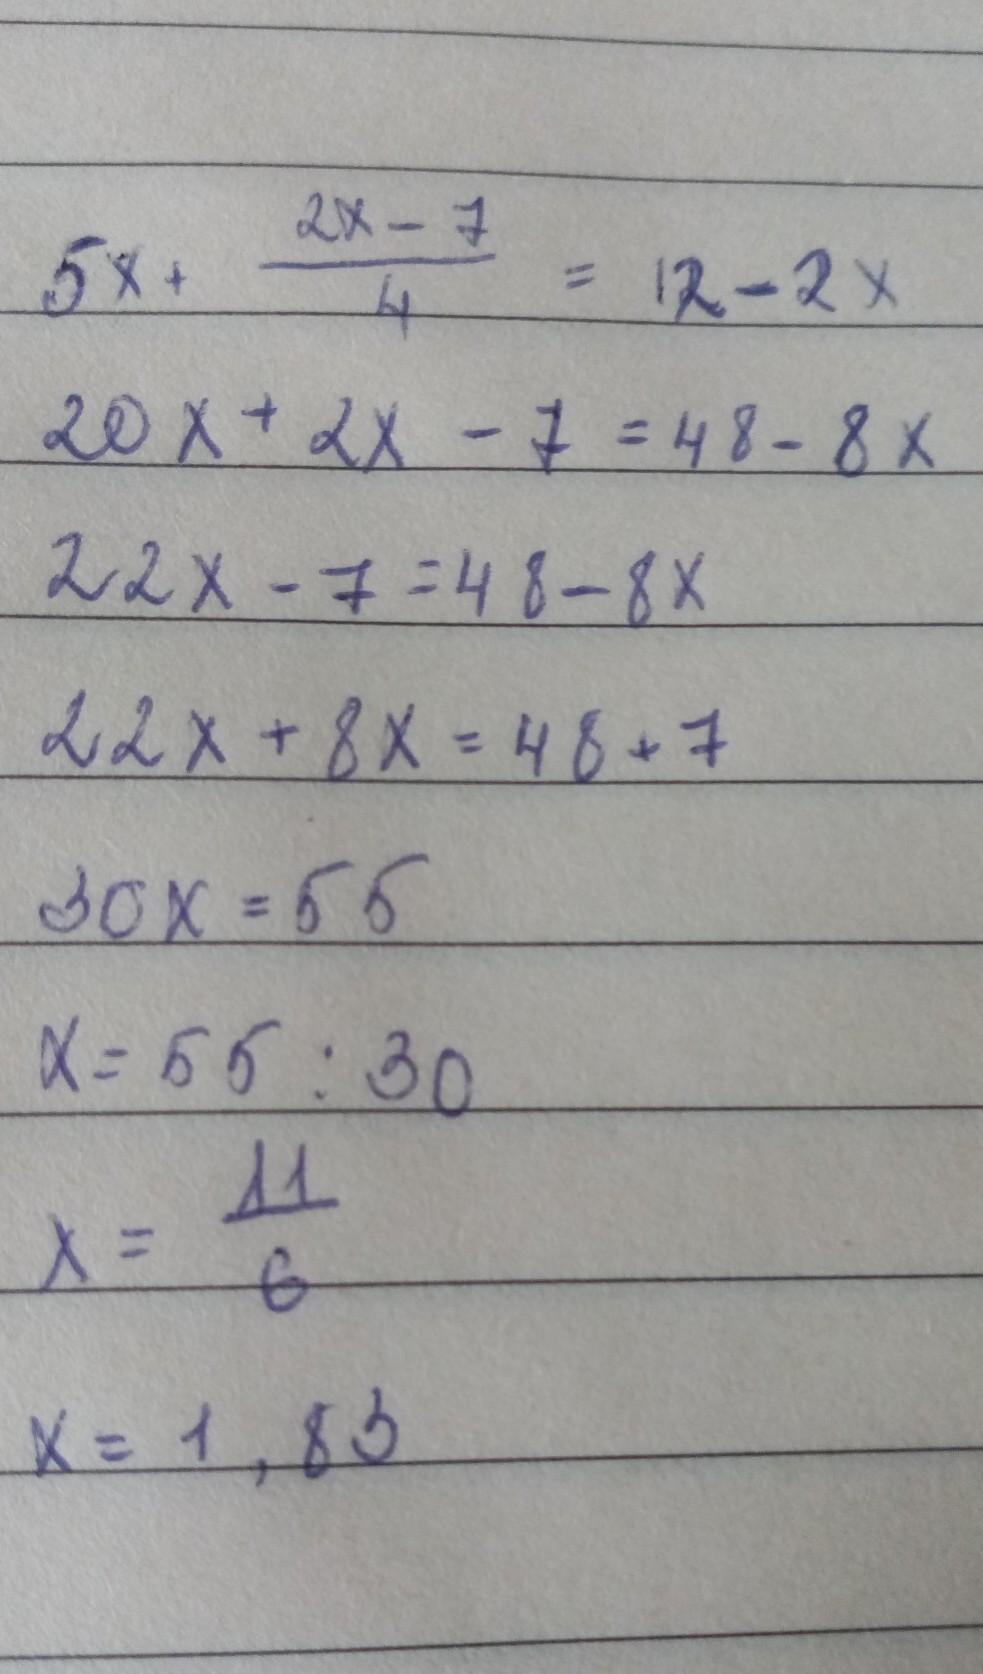 5x + (2x - 7)/4 = 12 - 2x
20x + 2x - 7 = 48 - 8x
22x - 7 = 48 - 8x
22x + 8x = 48 + 7
30x = 55
x = 55 : 30
x = 11/6
x = 1,83